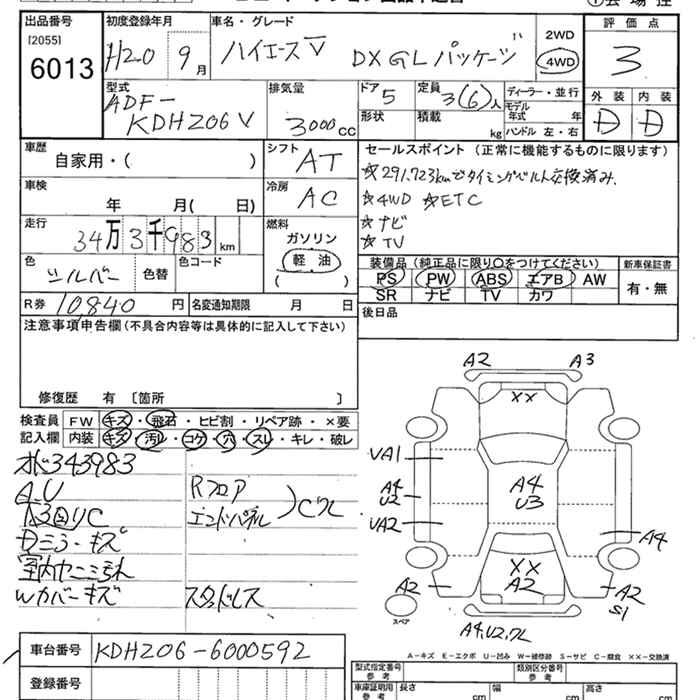 出品番号 初度登録年月 車名・グレード 2WD 評価点
[2055] 6013
H20 9月 ハイエースV DX GLパッケージ 4WD 3
型式 排気量 ドア 定員 ディーラー・並行 外装 内装
ADF-KDH206V 3000cc 5 3(6)人 モデル年式 年 D D
形状 積載 kg ハンドル 左・右
車歴 自家用・( ) シフト AT セールスポイント (正常に機能するものに限ります)
車検 年 月( 日) 冷房 AC
☆291,723kmでタイミングベルト交換済み.
☆4WD ☆ETC
☆ナビ
☆TV
走行 34万3千983km 燃料 ガソリン 軽油 ( )
色 シルバー 色替 色コード
装備品 (純正品に限り○をつけてください) 新車保証書
PS PW ABS エアB AW 有・無
SR ナビ TV カワ
R券 10,840円 名変通知期限 月 日 後日品
注意事項申告欄 (不具合内容等は具体的に記入して下さい)
修復歴 有 [箇所 ]
検査員 FW キズ・飛石・ヒビ割・リペア跡・×要
記入欄 内装 キズ・汚れ・コゲ・穴・スレ・キレ・破レ
343983
A.U Rフロア
エンドパネル
室内 汚れ
Wカバーキズ スタッドレス
A2 A3
XX
VA1
A4 U2
A4 U3
VA2
A4
XX
A2
A2
A2 S1
スペア
A4,U2,
A-キズ E-エクボ U-凹み W-補修跡 S-サビ C-腐食 ××-交換済
車台番号 KDH206-6000592
登録番号
型式指定番号 参考 類別区分番号 参考
車庫証明用 参考 長さ cm 幅 cm 高さ cm